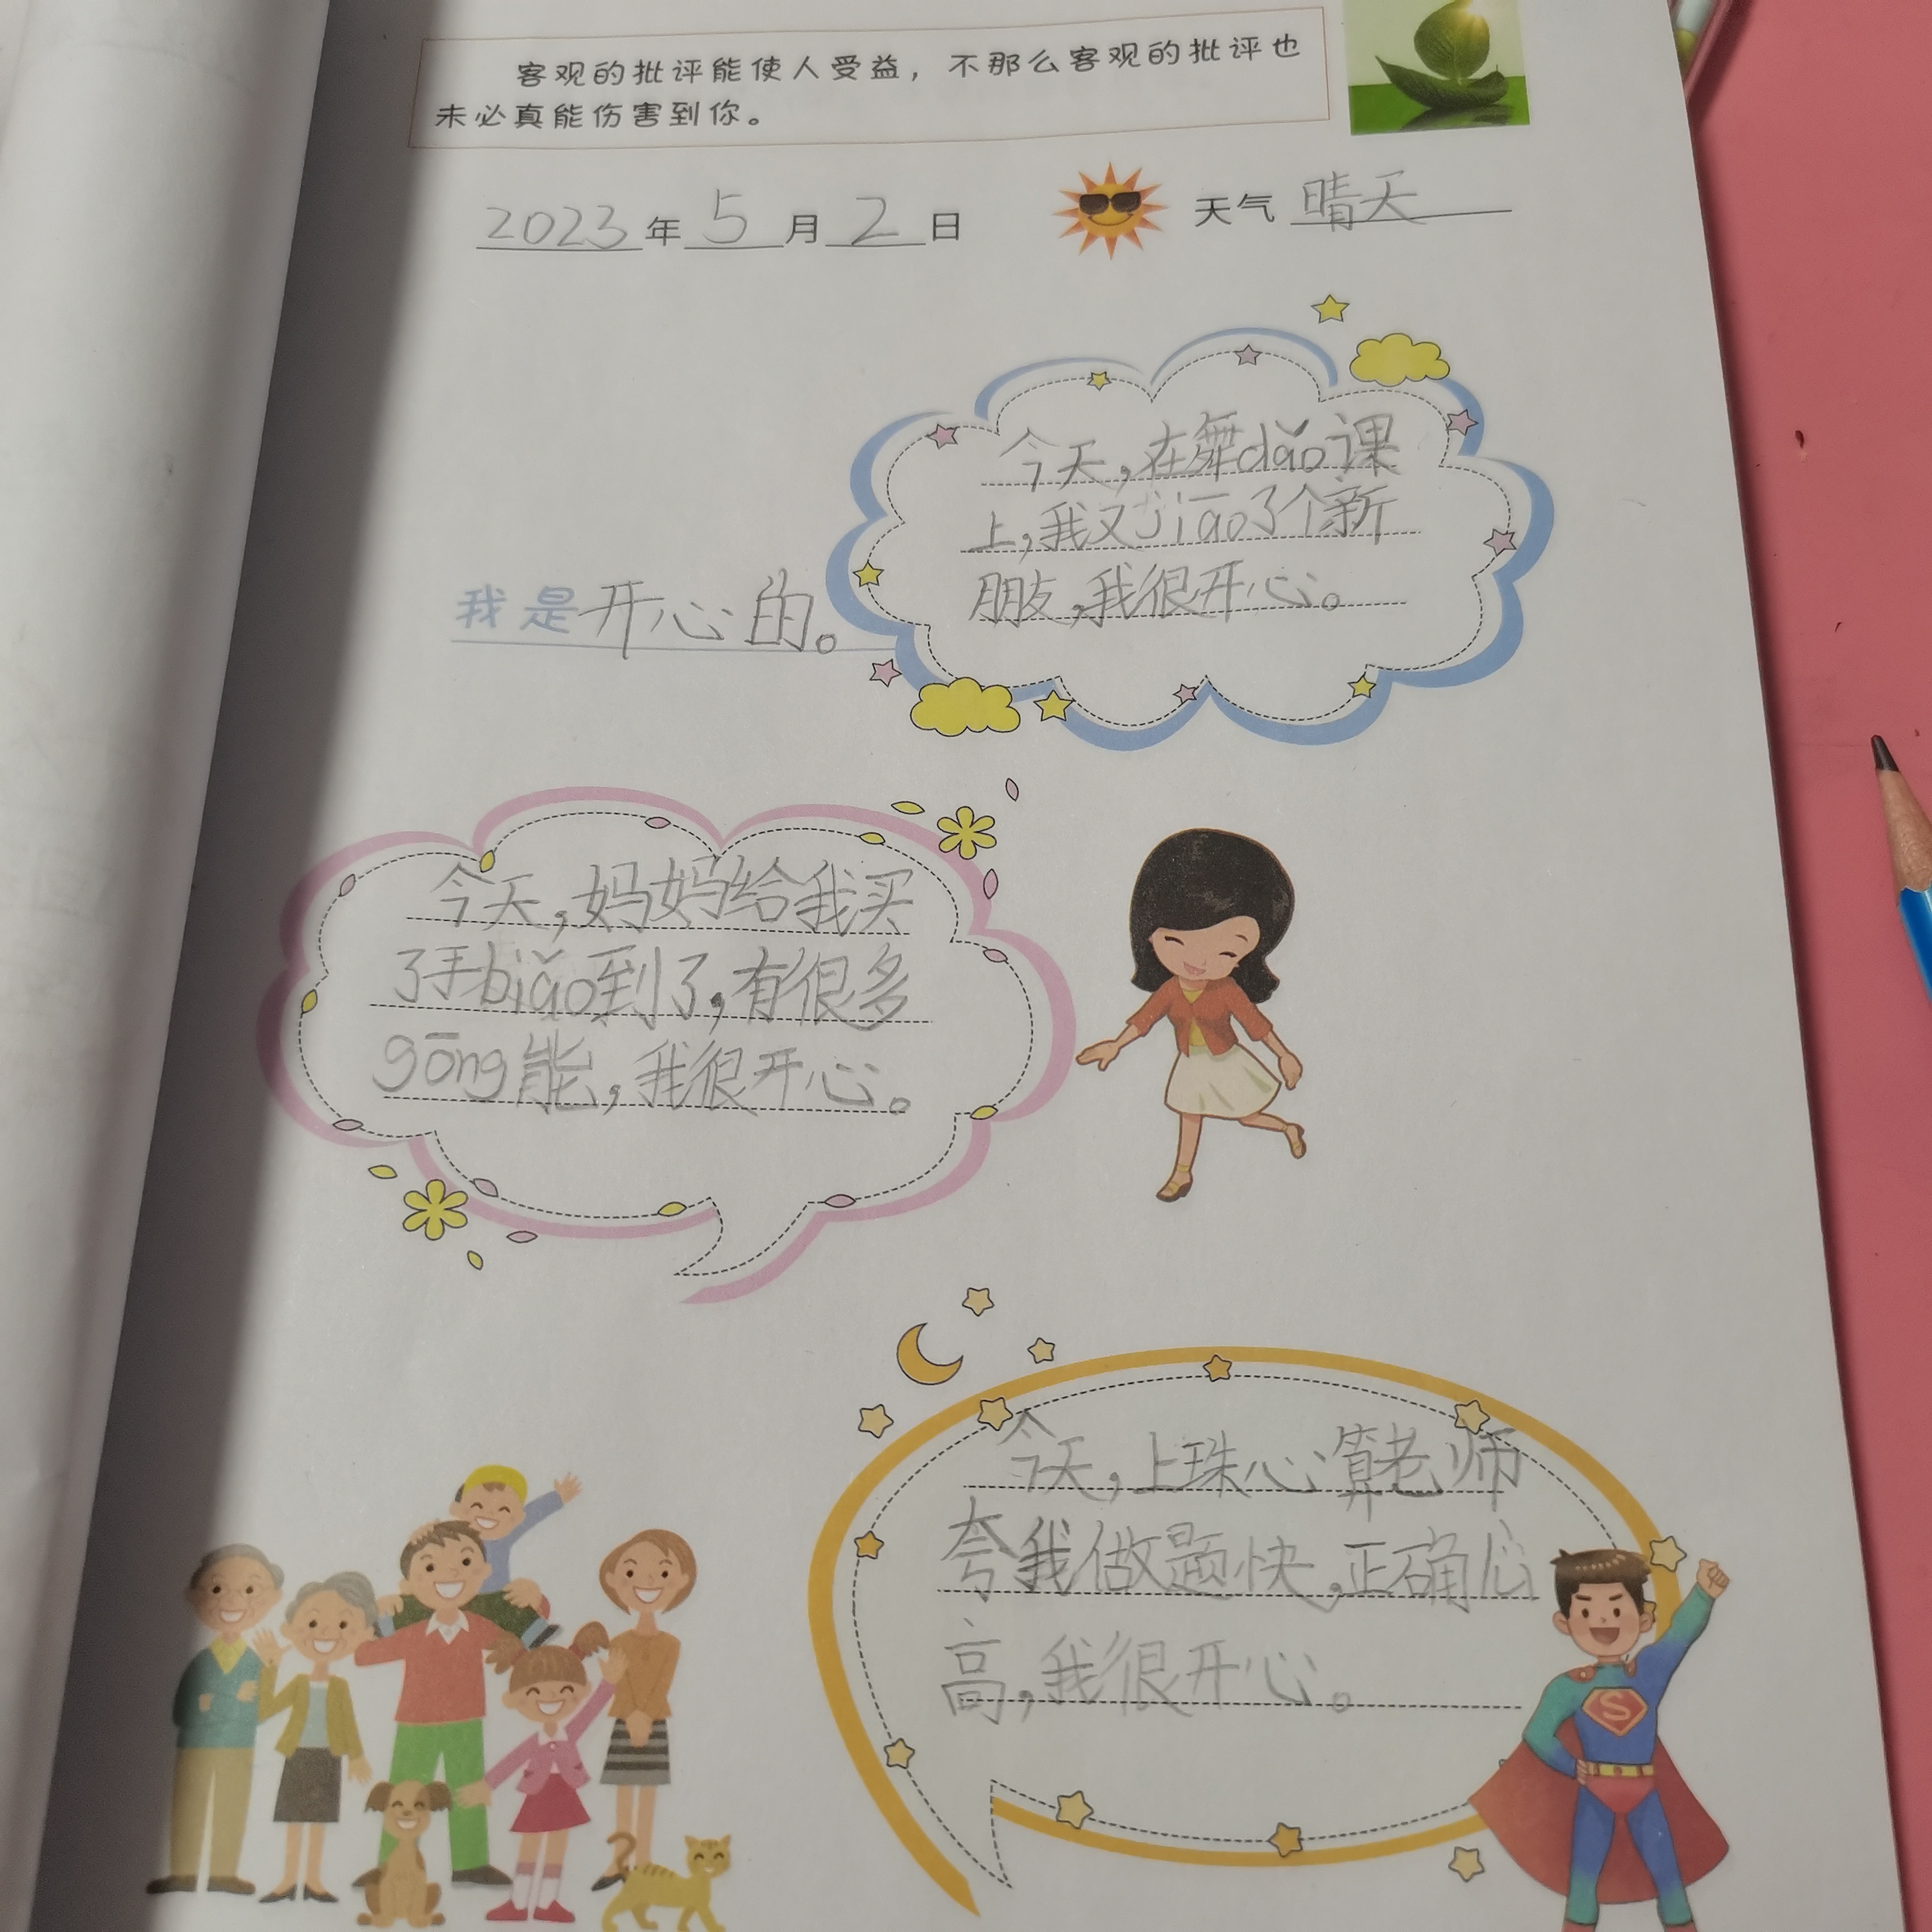 客观的批评能使人受益，不那么客观的批评也
未必真能伤害到你。
2023年5月2日
天气 晴天
今天，在舞dǎo课
上，我又jiāo了个新
朋友，我很开心。
我是开心的。
今天，妈妈给我买
了手biǎo到了，有很多
gōng能，我很开心。
今天，上珠心算老师
夸我做题快，正确
高，我很开心。
S